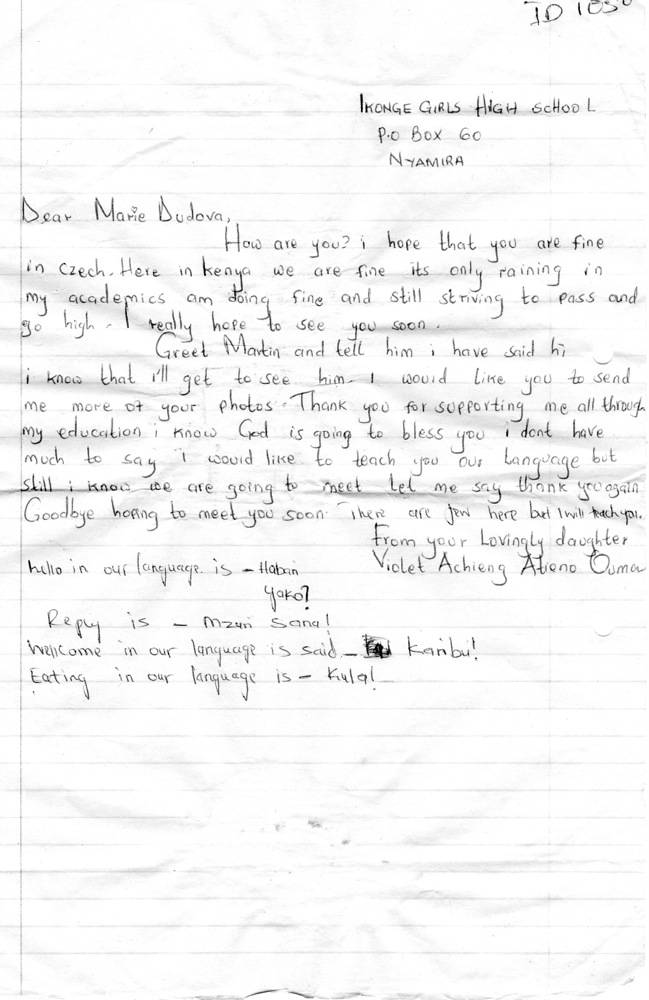 ID 1030
IKONGE GIRLS HIGH SCHOOL
P.O BOX 60
NYAMIRA
Dear Marie Dudova,
How are you? i hope that you are fine
in czech. Here in kenya we are fine its only raining in
my academics am doing fine and still striving to pass and
go high. I really hope to see you soon.
Greet Martin and tell him i have said hi
i know that i'll get to see him. I would like you to send
me more of your photos. Thank you for supporting me all through
my education i know God is going to bless you i dont have
much to say i would like to teach you our language but
still i know we are going to meet let me say thank you again
Goodbye hoping to meet you soon. There are few here but I will teach you.
From your Lovingly daughter
hello in our language is - Habari Violet Achieng Atieno Ouma
yako?
Reply is - mzuri sana!
Wellcome in our language is said - Karibu!
Eating in our language is - Kula!